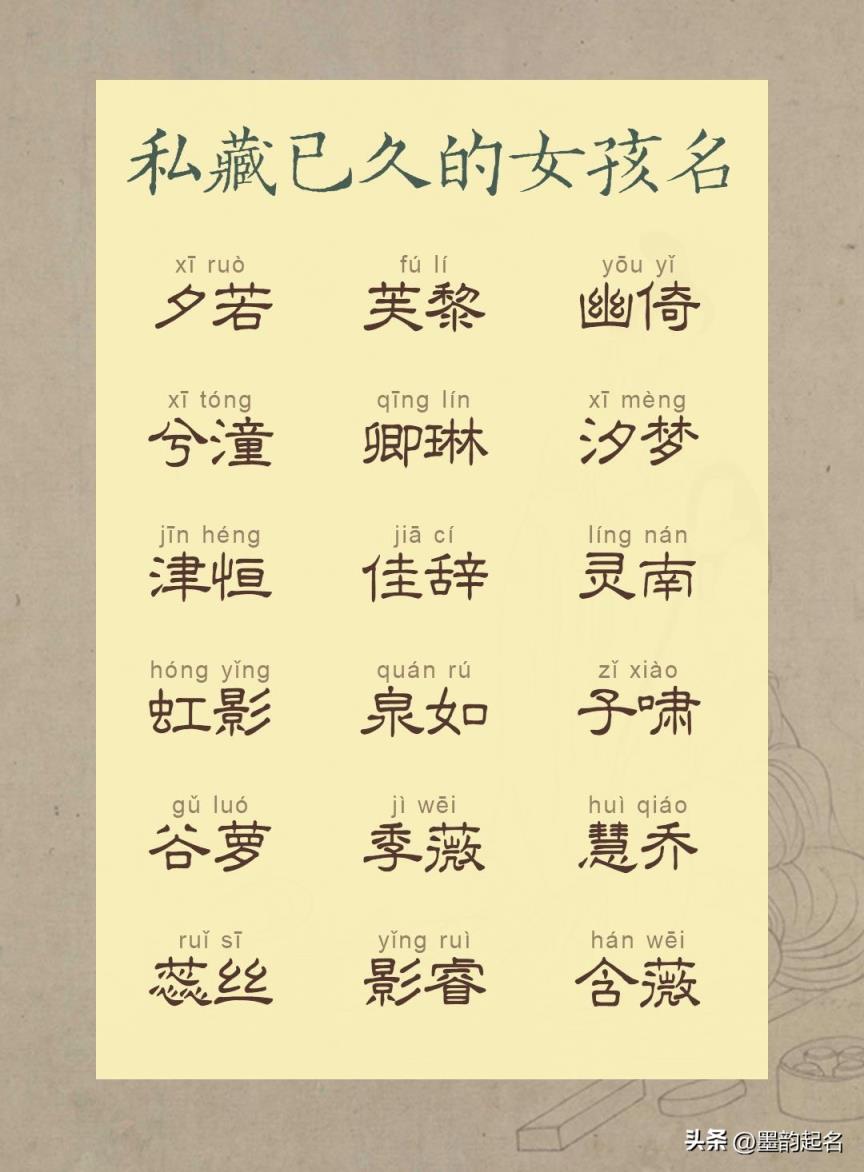 私藏已久的女孩名
xī ruò fú lí yōu yǐ
夕若 芙黎 幽倚
xī tóng qīng lín xī mèng
兮潼 卿琳 汐梦
jīn héng jiā cí líng nán
津恒 佳辞 灵南
hóng yǐng quán rú zǐ xiào
虹影 泉如 子啸
gǔ luó jì wēi huì qiáo
谷萝 季薇 慧乔
ruǐ sī yǐng ruì hán wēi
蕊丝 影睿 含薇
头条 @墨韵起名